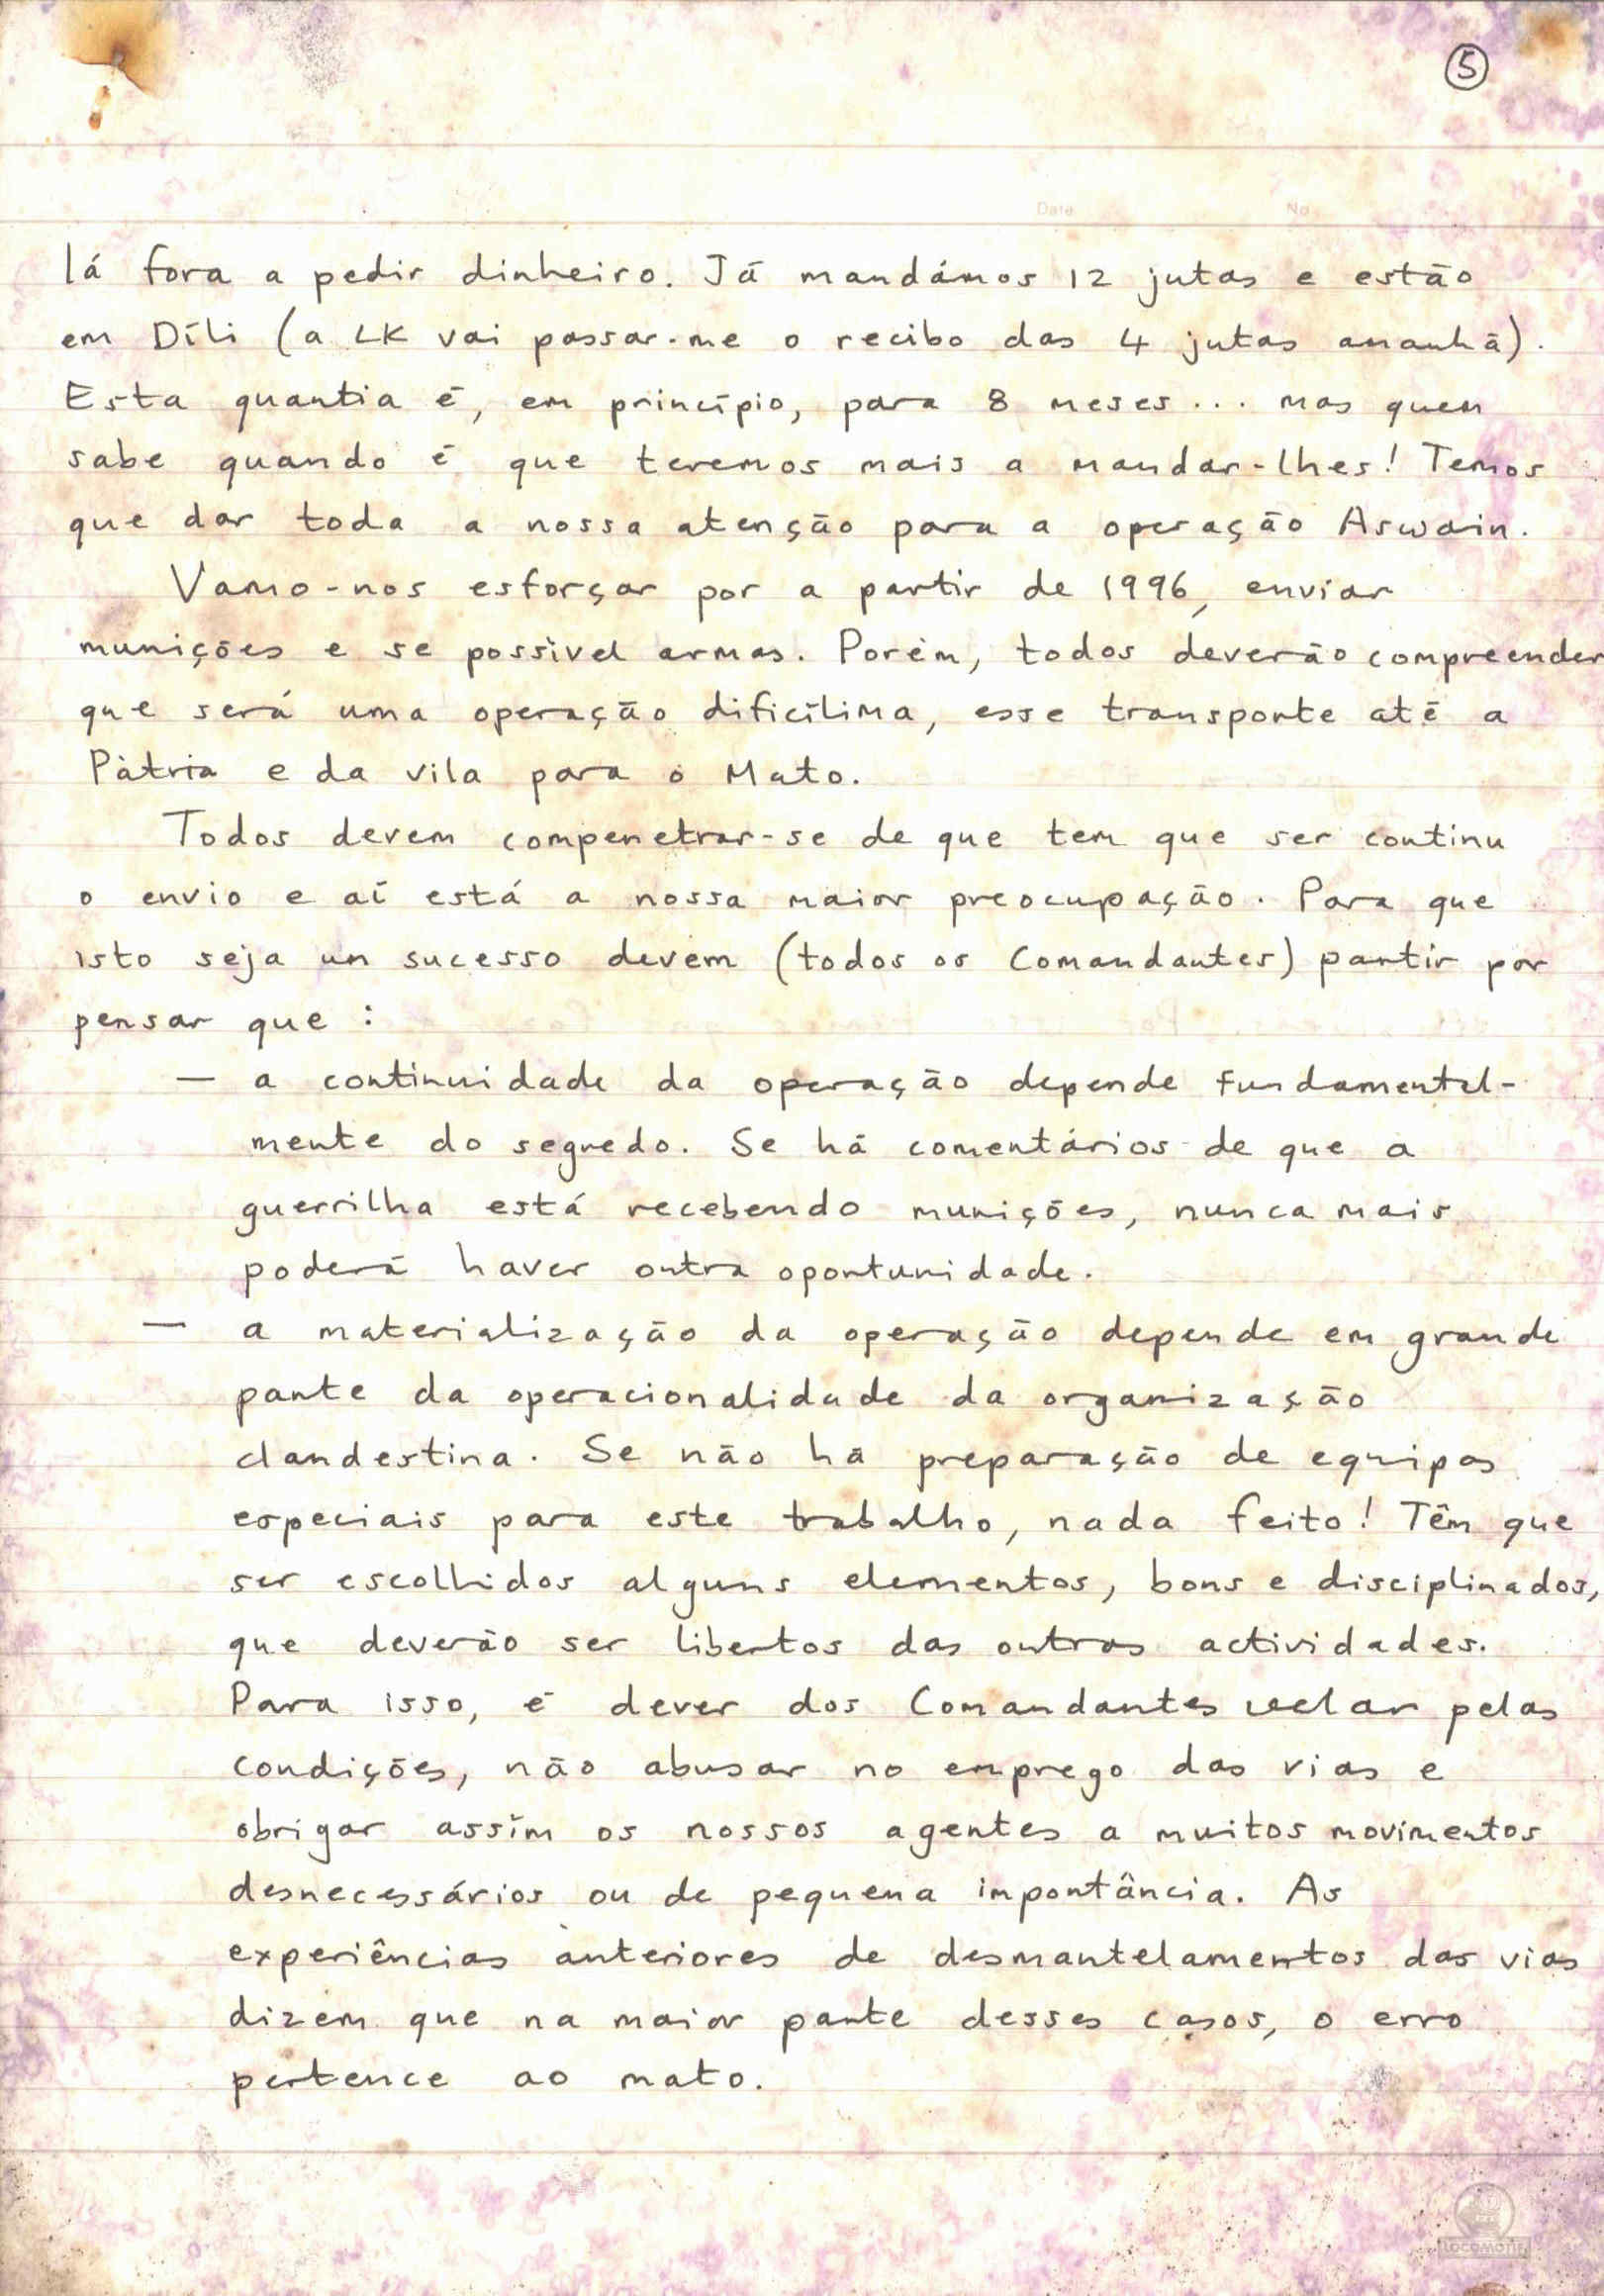 5
Date No
lá fora a pedir dinheiro. Já mandámos 12 jutas e estão
em Díli (a LK vai passar-me o recibo das 4 jutas amanhã).
Esta quantia é, em princípio, para 8 meses... mas quem
sabe quando é que teremos mais a mandar-lhes! Temos
que dar toda a nossa atenção para a operação Aswain.
Vamo-nos esforçar por a partir de 1996, enviar
munições e se possìvel armas. Porém, todos deverão compreender
que será uma operação dificílima, esse transporte até a
Pàtria e da vila para o Mato.
Todos devem compenetrar-se de que tem que ser continu
o envio e aí está a nossa maior preocupação. Para que
isto seja um sucesso devem (todos os Comandantes) partir por
pensar que :
— a continuidade da operação depende fundamental-
mente do segredo. Se há comentários de que a
guerrilha está recebendo munições, nunca mais
poderá haver outra oportunidade.
— a materialização da operação depende em grande
parte da operacionalidade da organização
clandestina. Se não há preparação de equipas
especiais para este trabalho, nada feito! Têm que
ser escolhidos alguns elementos, bons e disciplinados,
que deverão ser libertos das outras actividades.
Para isso, é dever dos Comandantes velar pelas
condições, não abusar no emprego das vias e
obrigar assim os nossos agentes a muitos movimentos
desnecessários ou de pequena importância. As
experiências anteriores de desmantelamentos das vias
dizem que na maior parte desses casos, o erro
pertence ao mato.
LOCOMOTIF